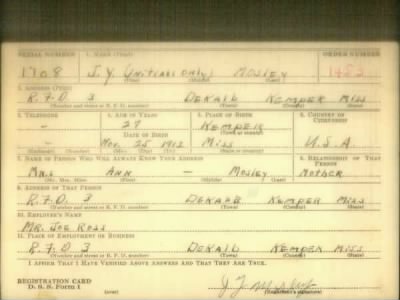 SERIAL NUMBER 1. NAME (Print) ORDER NUMBER
1708 J.Y. (INITIALS ONLY) MOSLEY 1452
(First) (Middle) (Last)
2. ADDRESS (Print)
R.F.D 3 DEKALB KEMPER MISS
(Number and street or R. F. D. number) (Town) (County) (State)
3. TELEPHONE 4. AGE IN YEARS 5. PLACE OF BIRTH 6. COUNTRY OF CITIZENSHIP
- 27 KEMPER
DATE OF BIRTH (Town or county)
- NOV. 25 1912 MISS U.S.A
(Exchange) (Number) (Mo.) (Day) (Yr.) (State or country)
7. NAME OF PERSON WHO WILL ALWAYS KNOW YOUR ADDRESS 8. RELATIONSHIP OF THAT PERSON
MRS ANN - MOSLEY MOTHER
(Mr., Mrs., Miss) (First) (Middle) (Last)
9. ADDRESS OF THAT PERSON
R.F.D 3 DEKALB KEMPER MISS
(Number and street or R. F. D. number) (Town) (County) (State)
10. EMPLOYER'S NAME
MR. JOE ROSS
11. PLACE OF EMPLOYMENT OR BUSINESS
R.F.D 3 DEKALB KEMPER MISS
(Number and street or R. F. D. number) (Town) (County) (State)
I AFFIRM THAT I HAVE VERIFIED ABOVE ANSWERS AND THAT THEY ARE TRUE.
REGISTRATION CARD
D. S. S. Form 1 (over) (Registrant's signature)